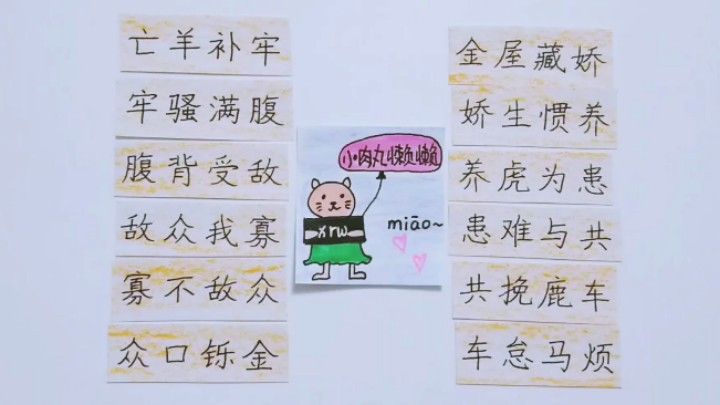 亡羊补牢
牢骚满腹
腹背受敌
敌众我寡
寡不敌众
众口铄金
小肉丸懒懒
xrw
miāo~
金屋藏娇
娇生惯养
养虎为患
患难与共
共挽鹿车
车怠马烦